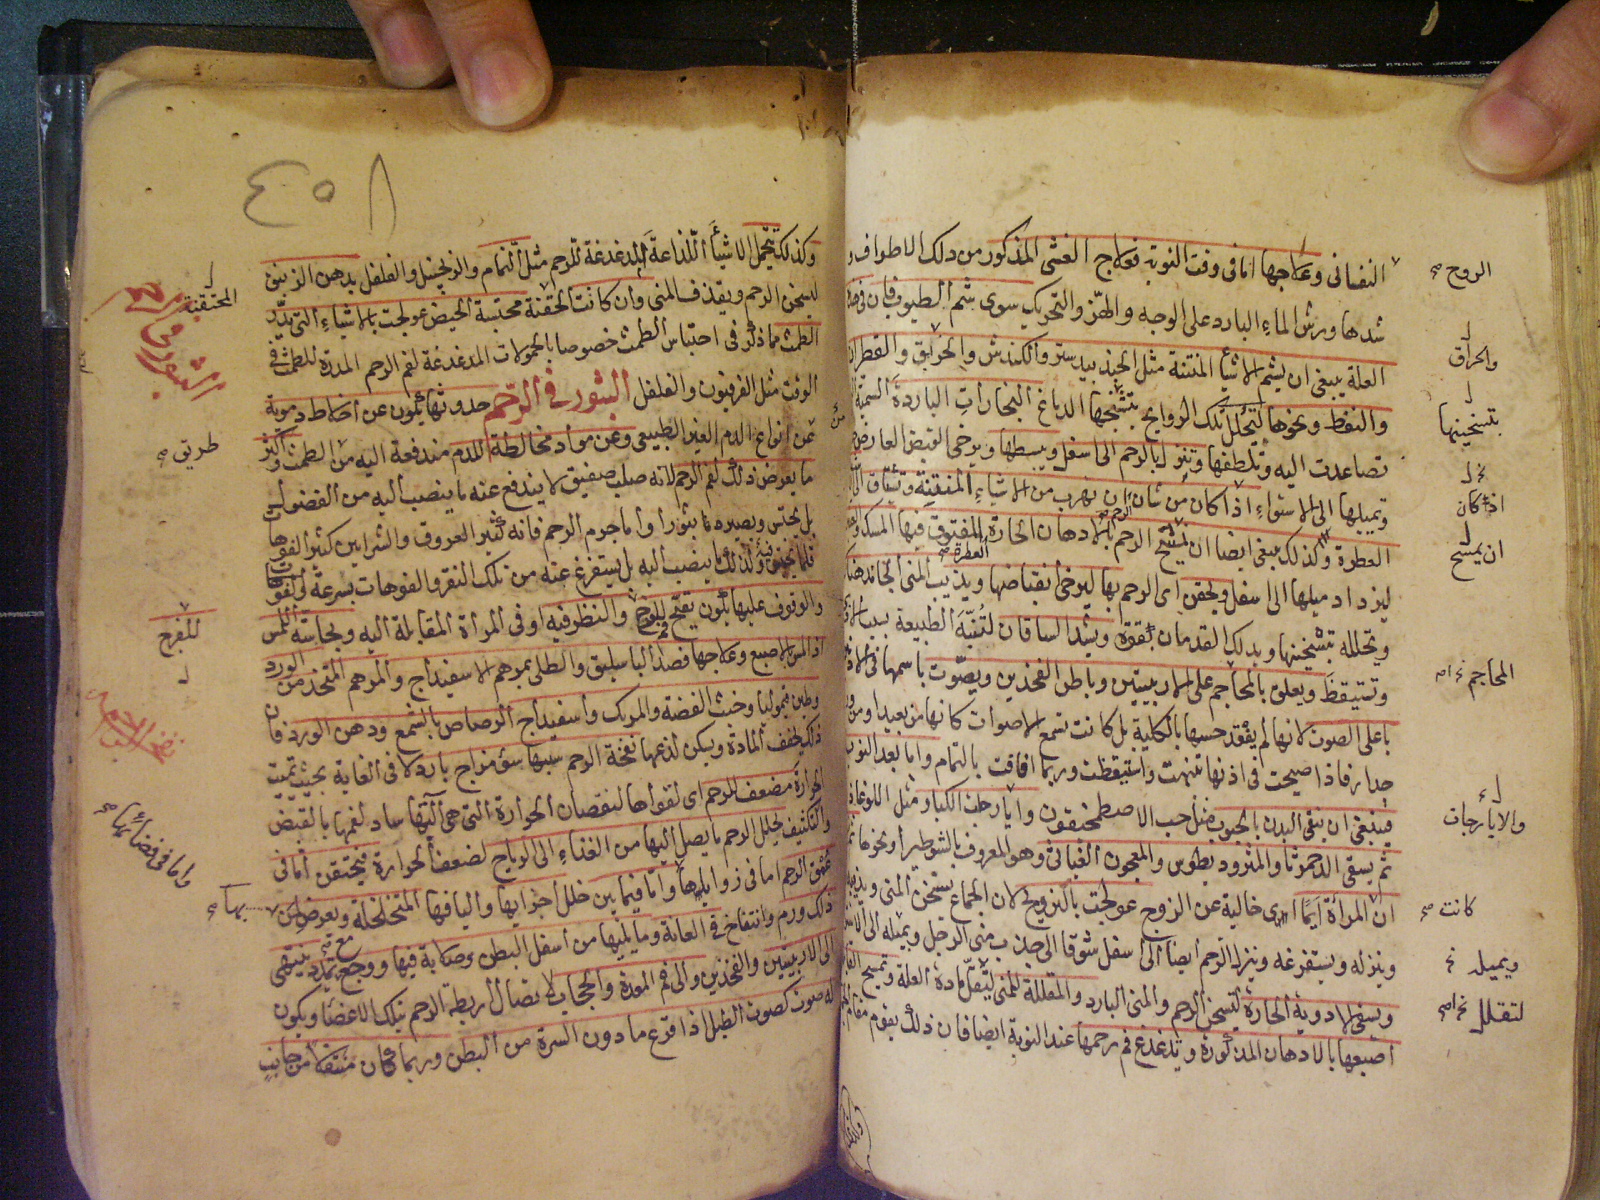 النفسانى وعلاجها اما فى وقت النوبة فعلاج الغشى المذكور من دلك الاطراف و
شدها ورش الماء البارد على الوجه والهز والتحريك سوى شم الطيوب فان فى هذه
العلة ينبغى ان يشم الاشياء المنتنة مثل الجندبيدستر والكندش والحراق والقطران
والنفط ونحوها لتحلل تلك الروايح بتسخينها الدماغ البخارات الباردة السمية
تصاعدت اليه وتلطفها وتنزل بالرحم الى اسفل ويبسطها ويرخى القبض العارض
وتميلها الى الاستواء اذا كان من شان ان تهرب من الاشياء المنتنة وتشتاق الى
العطرة وكذلك ينبغى ايضا ان يمسح الرحم بالادهان الحارة المفتوق فيها المسك
ليزداد ميلها الى اسفل ويحقن اى الرحم بها ليرخى انقباضها ويذيب المنى
ويحلله بتسخينها ويدلك القدمان بقوة ويشد الساقان لتنبه الطبيعة بسبب
وتستيقظ ويعلق بالمحاجم على الاربيتين وباطن الفخذين ويصوت باسمها فى
باعلى الصوت لانها لم يفقد حسها بالكلية بل كانت تسمع الاصوات كانها من بعيد او من
جدار فاذا صيحت فى اذنها تنبهت واستيقظت وربما افاقت بالتمام واما بعد النوبة
فينبغى ان ينقى البدن بالحبوب مثل حب الاصطمخيقون وايارجات الكبار مثل اللوغاذيا
ثم يسقى الدحمرثا والمثروديطوس والمعجون الغياثى وهو المعروف بالشوطيرا ونحوها
ان المراة ايما اى خالية عن الزوج عولجت بالتزويج لان الجماع يسخن المنى ويذيبه
وينزله ويستفرغه وينزل الرحم ايضا الى اسفل شوقا الى جذب منى الرجل ويميله الى
وتسقى الادوية الحارة لتسخن الرحم والمنى البارد والمقللة للمنى ليقل مادة العلة وتمسح
اصبعها بالادهان المذكورة وتدغدغ فم رحمها عند النوبة ايضا فان ذلك يقوم مقام
الروح
والحراق
بتسخينها
اذ كان
ان يمسح
المحاجم
والايارجات
كانت
ويميله
لتقلل
٤٥٨
وكذلك تحمل الاشياء اللذاعة المدغدغة للرحم مثل النمام والزنجبيل والفلفل بدهن الزنبق
ليسخن الرحم ويقذف المنى وان كانت المختنقة محتبسة الحيض عولجت بالاشياء التى تدر
الطمث مما ذكر فى احتباس الطمث خصوصا بالحمولات المدغدغة لفم الرحم المدرة للطمث فى
الوقت مثل الفرفيون والفلفل البثور فى الرحم حدوثها يكون عن اخلاط دموية
عن انواع الدم الغير الطبيعى وعن مواد مخالطة للدم مندفعة اليه من الطمث واكثر
ما يعرض ذلك لفم الرحم لانه صلب صفيق لا يندفع عنه ما ينصب اليه من الفضول
بل يحتبس ويصيره بثورا واما جرم الرحم فانه كثير العروق والشرايين كثير الفوهات
فلما يحتبس فيه لذلك ما ينصب اليه بل يستفرغ عنه من تلك النقر والفوهات بسرعة
والوقوف عليها يكون بفتح الفرج والنظر فيه او فى المرأة المقابلة اليه وبحاسة اللمس
اذا لمس بالاصبع وعلاجها فصد الباسليق والطلى بمرهم الاسفيداج والمرهم المتخذ من الورد
وطين قيموليا وخبث الفضة والمرتك واسفيداج الرصاص بالشمع ودهن الورد فان
ذلك يجفف المادة ويسكن لذعها نفخة الرحم سببها سؤ مزاج بارد لا فى الغاية بحيث تميت
الحرارة مضعف للرحم اى لقواها لنقصان الحرارة التى هى آلتها ساد لفمها بالقبض
والتكثيف يحلل الرحم ما يصل اليها من الغذاء الى الرياح لضعف الحرارة فيحتقن اما فى
عمق الرحم اما فى زواياها واما فيما بين خلل اجزايها واليافها المتخلخلة ويعرض من
ذلك ورم وانتفاخ فى العانة وما يليها من اسفل البطن وصلابة فيها ووجع مع تمدد يرتقى
الى الاربيتين والفخذين والى فم المعدة والحجاب لاتصال اربطة الرحم بتلك الاعضا ويكون
له صوت كصوت الطبل اذا قرع ما دون السرة من البطن وربما كان منتقلا من جانب
المختنقة
البثور فى الرحم
طريق
للفرج
نفخة الرحم
واما فى فضائها
بها